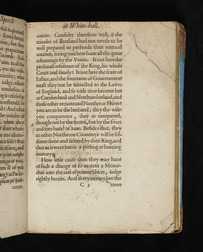 at White-hall.
taine. Consider therefore well, if the
mindes of Scotland had not neede to be
well prepared to perswade their mutuall
consent, seeing you here haue all the great
aduantage by the Vnion. Is not here the
personall residence of the King, his whole
Court and family? Is not here the seate of
Iustice, and the fountaine of Gouernment?
must they not be subiected to the Lawes
of England, and so with time become but
as Cumberland and Northumberland, and
those other remote and Northerne Shires?
you are to be the husband, they the wife:
you conquerours, they as conquered,
though not by the sword, but by the sweet
and sure bond of loue. Besides that, they
as other Northerne Countreys will be sel-
dome seene and saluted by their King, and
that as it were but in a posting or hunting
iourney.
How little cause then they may haue
of such a change of so ancient a Monar-
chie into the case of priuate Shires, I iudge
rightly herein. And that you may be the
C 3 more